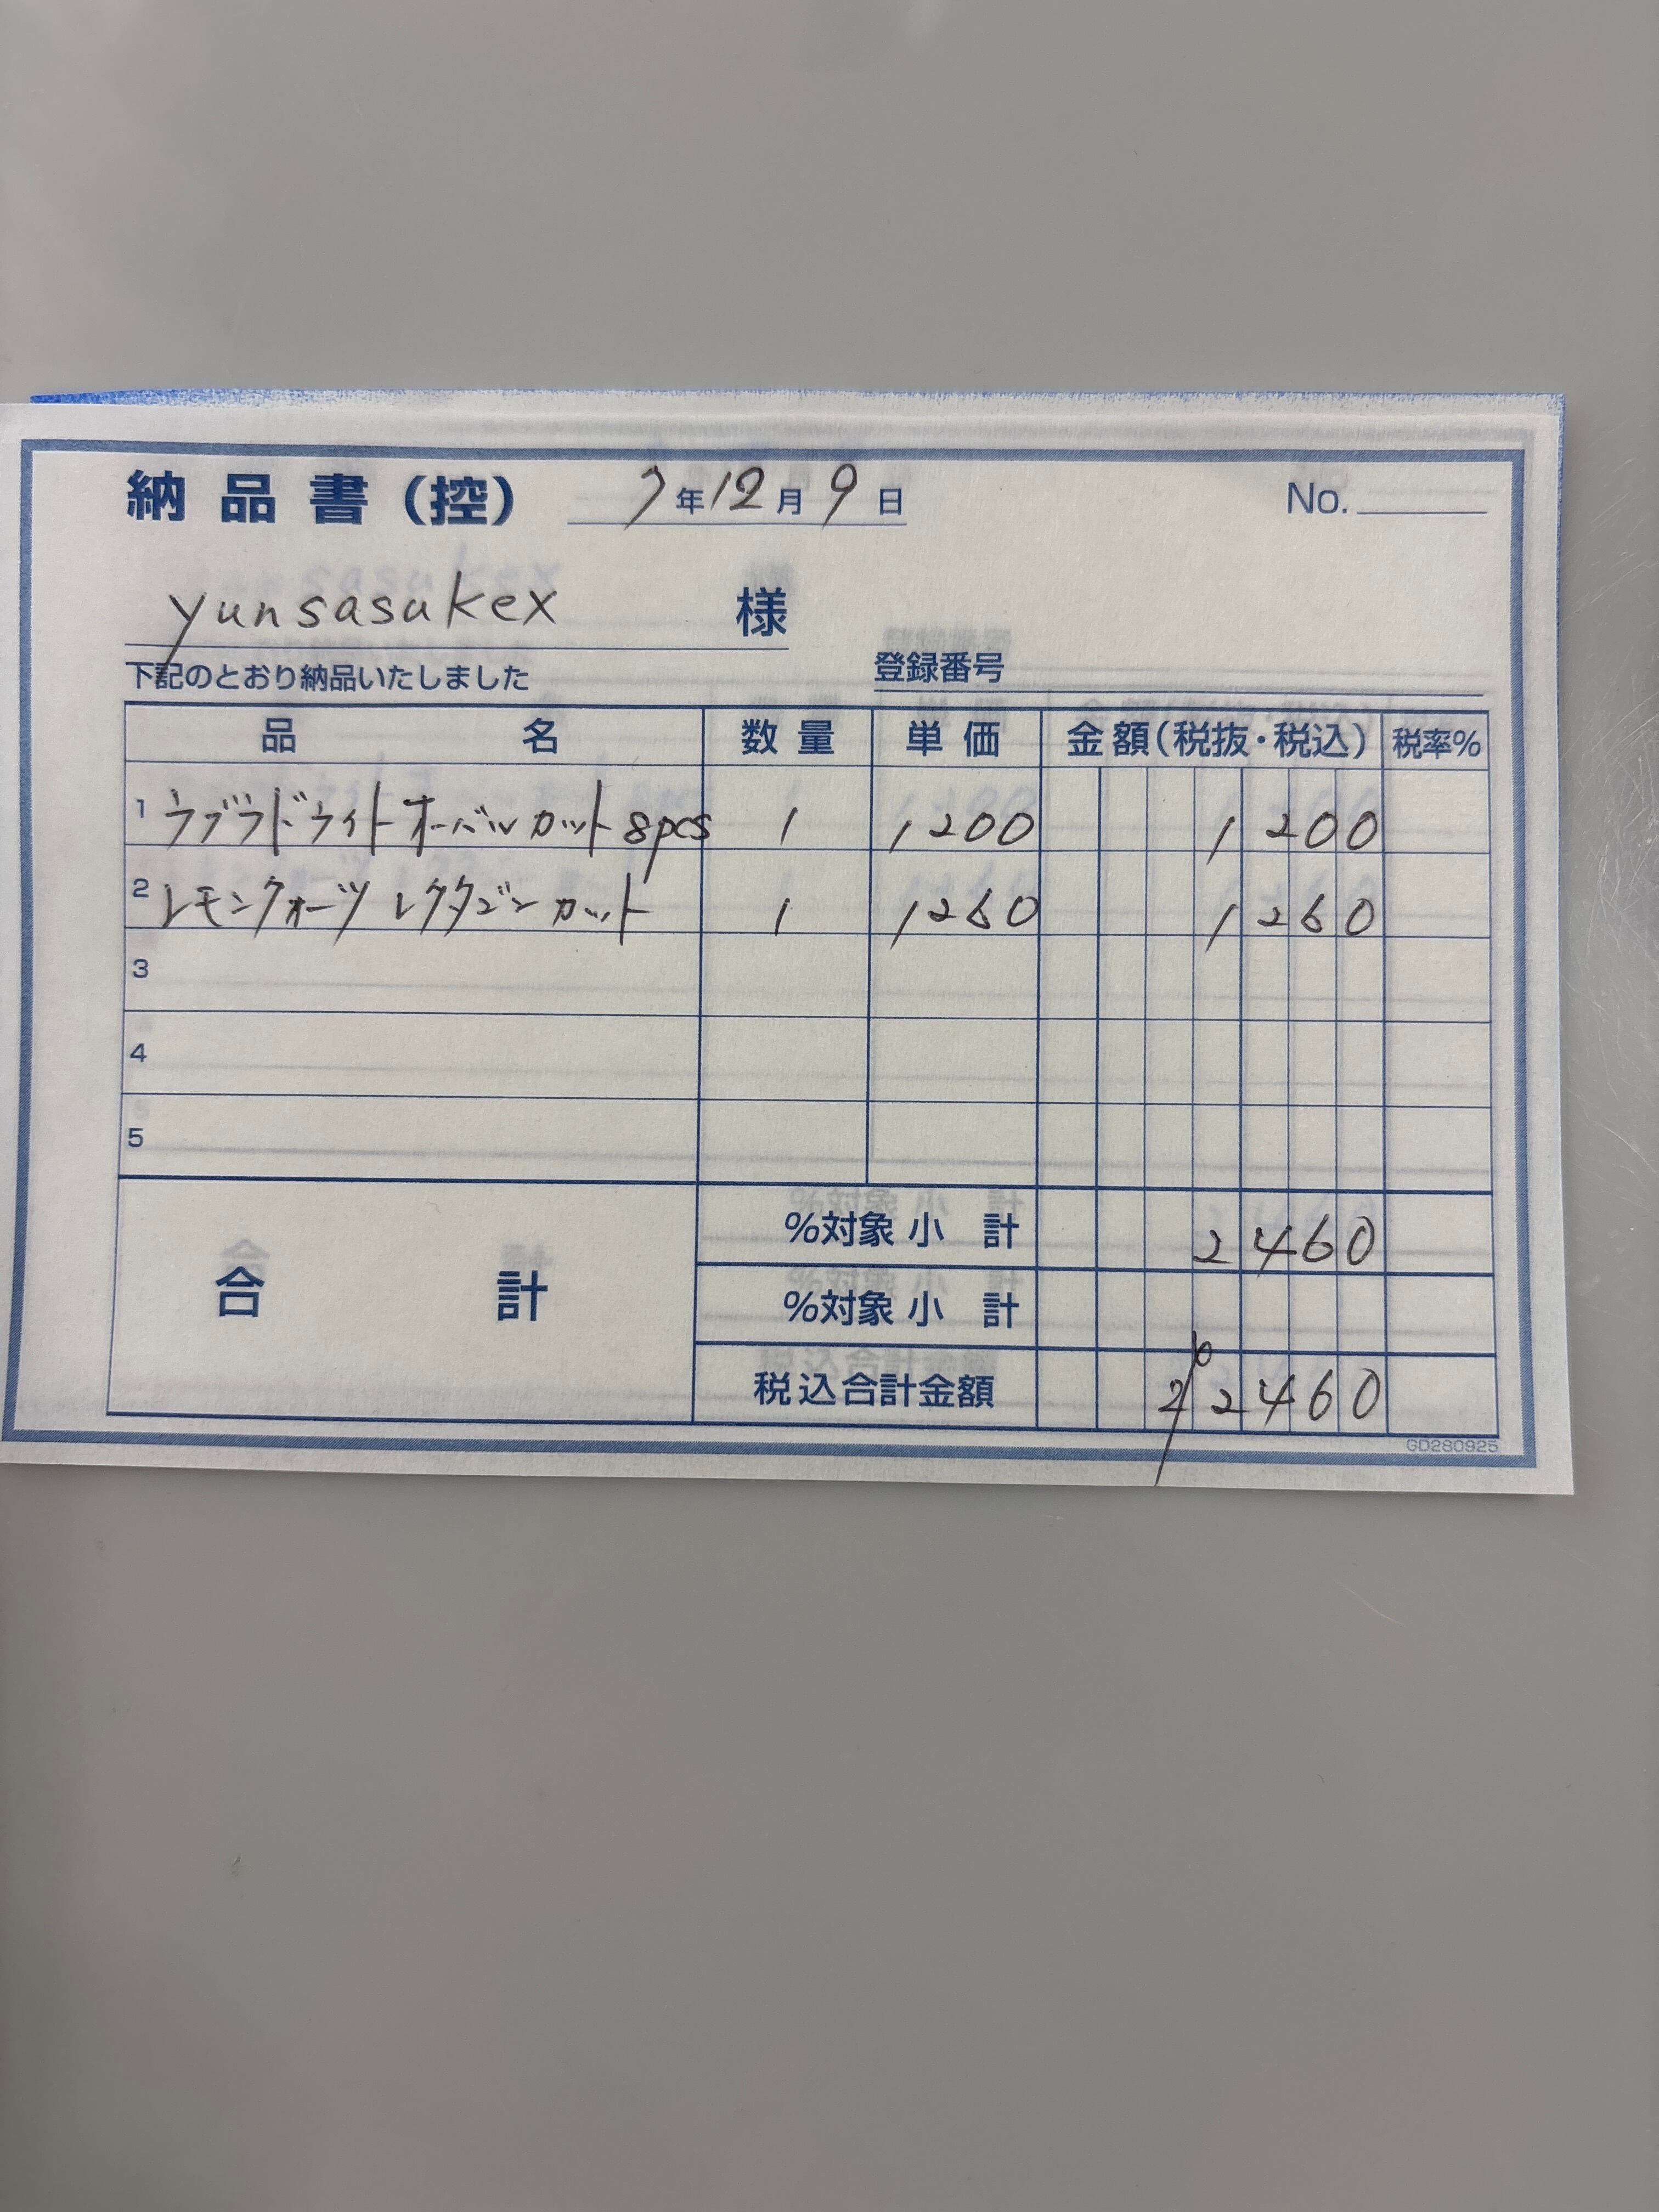 納品書(控) 7年12月9日 No.
yunsasukex 様
下記のとおり納品いたしました 登録番号
品名 数量 単価 金額(税抜・税込) 税率%
1 ラブラドライトオーバルカット8pcs 1 1200 1200
2 レモンクォーツ レクタゴンカット 1 1260 1260
3
4
5
合計 %対象小計 2460
%対象小計
税込合計金額 2460
GD280925